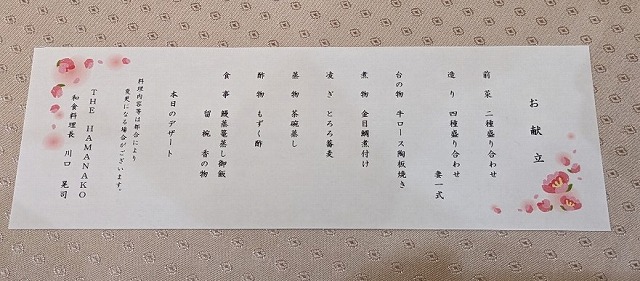 お献立
前菜 二種盛り合わせ
造り 四種盛り合わせ
妻一式
台の物 牛ロース陶板焼き
煮物 金目鯛煮付け
凌ぎ とろろ蕎麦
蒸物 茶碗蒸し
酢物 もずく酢
食事 鰻蒸篭蒸し御飯
留椀 香の物
本日のデザート
料理内容等は都合により
変更になる場合がございます。
THE HAMANAKO
和食料理長 川口 晃司